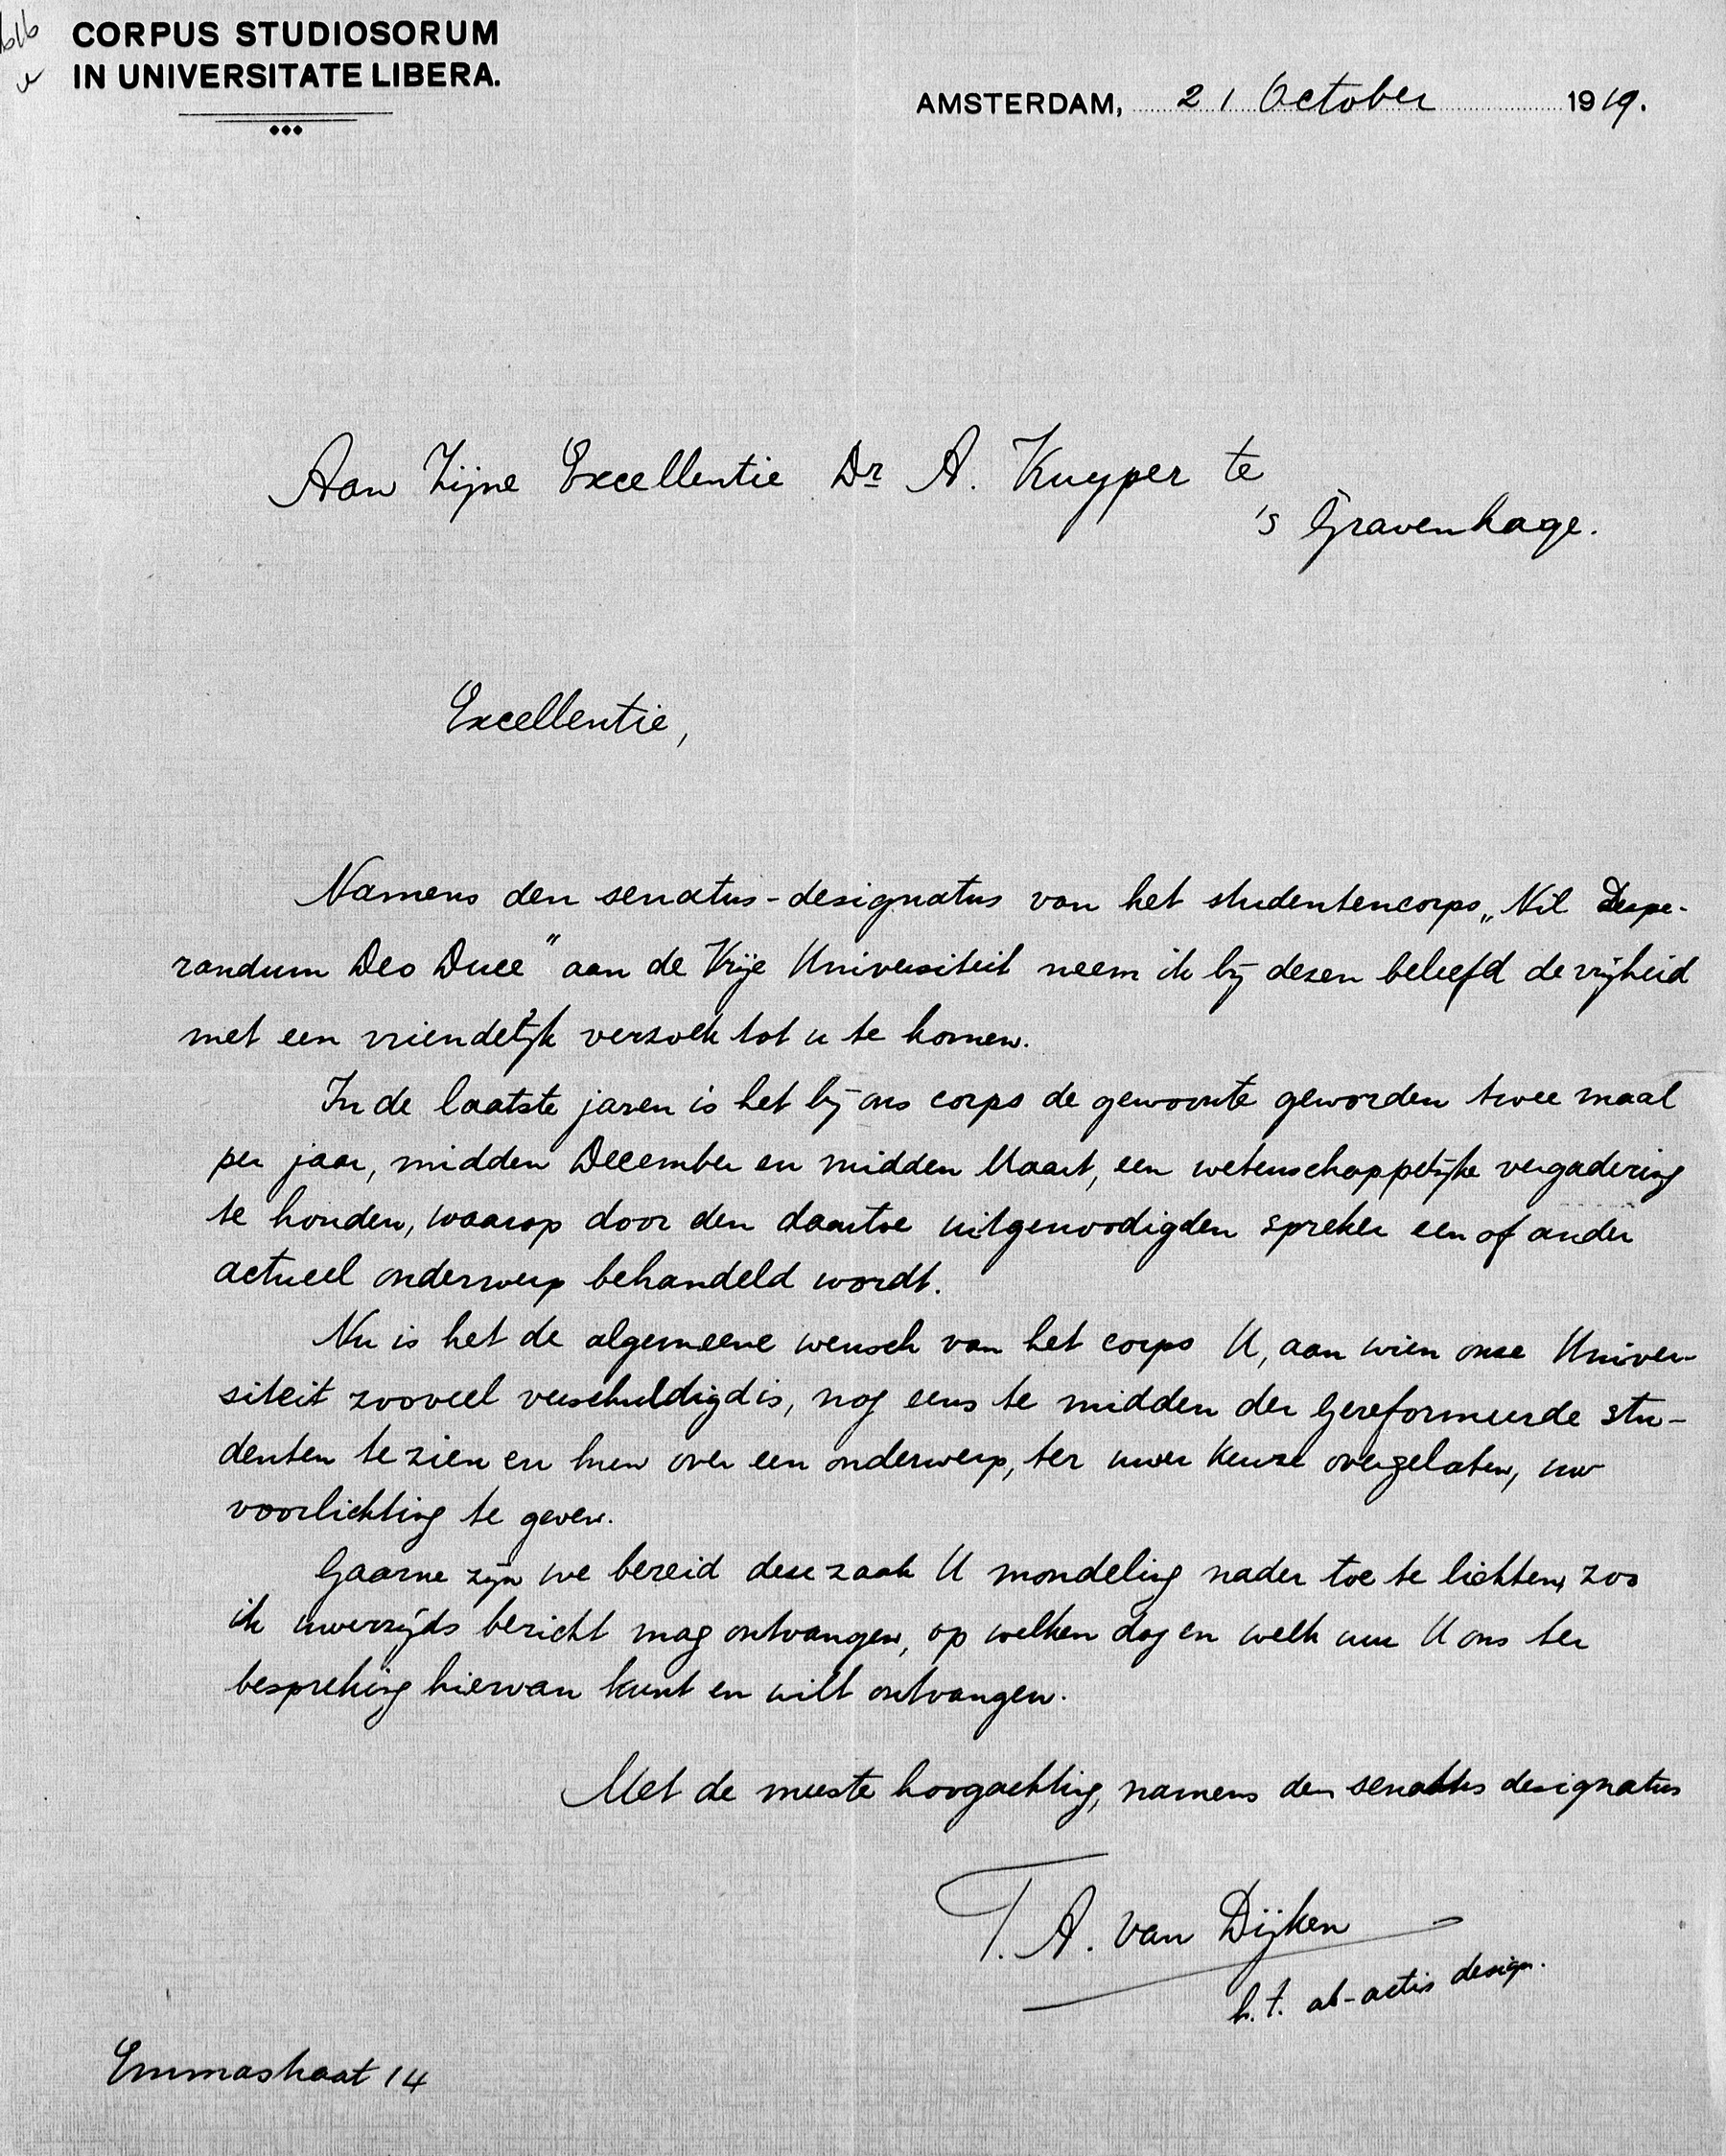 CORPUS STUDIOSORUM
IN UNIVERSITATE LIBERA.
AMSTERDAM, 21 October 1919.
Aan Zijne Excellentie Dr A. Kuyper te
's Gravenhage.
Excellentie,
Namens den senatus-designatus van het studentencorps „Nil Despe-
randum Deo Duce" aan de Vrije Universiteit neem ik bij dezen beleefd de vrijheid
met een vriendelijk verzoek tot u te komen.
In de laatste jaren is het bij ons corps de gewoonte geworden twee maal
per jaar, midden December en midden Maart, een wetenschappelijke vergadering
te houden, waarop door den daartoe uitgenoodigden spreker een of ander
actueel onderwerp behandeld wordt.
Nu is het de algemeene wensch van het corps U, aan wien onze Univer-
siteit zooveel verschuldigd is, nog eens te midden der Gereformeerde stu-
denten te zien en hun over een onderwerp, ter uwer keuze overgelaten, uw
voorlichting te geven.
Gaarne zijn we bereid deze zaak U mondeling nader toe te lichten, zoo
ik uwerzijds bericht mag ontvangen, op welken dag en welk uur U ons ter
bespreking hiervan kunt en wilt ontvangen.
Met de meeste hoogachting, namens den senatus designatus
T. A. van Dijken
h. t. ab-actis design.
Emmastraat 14